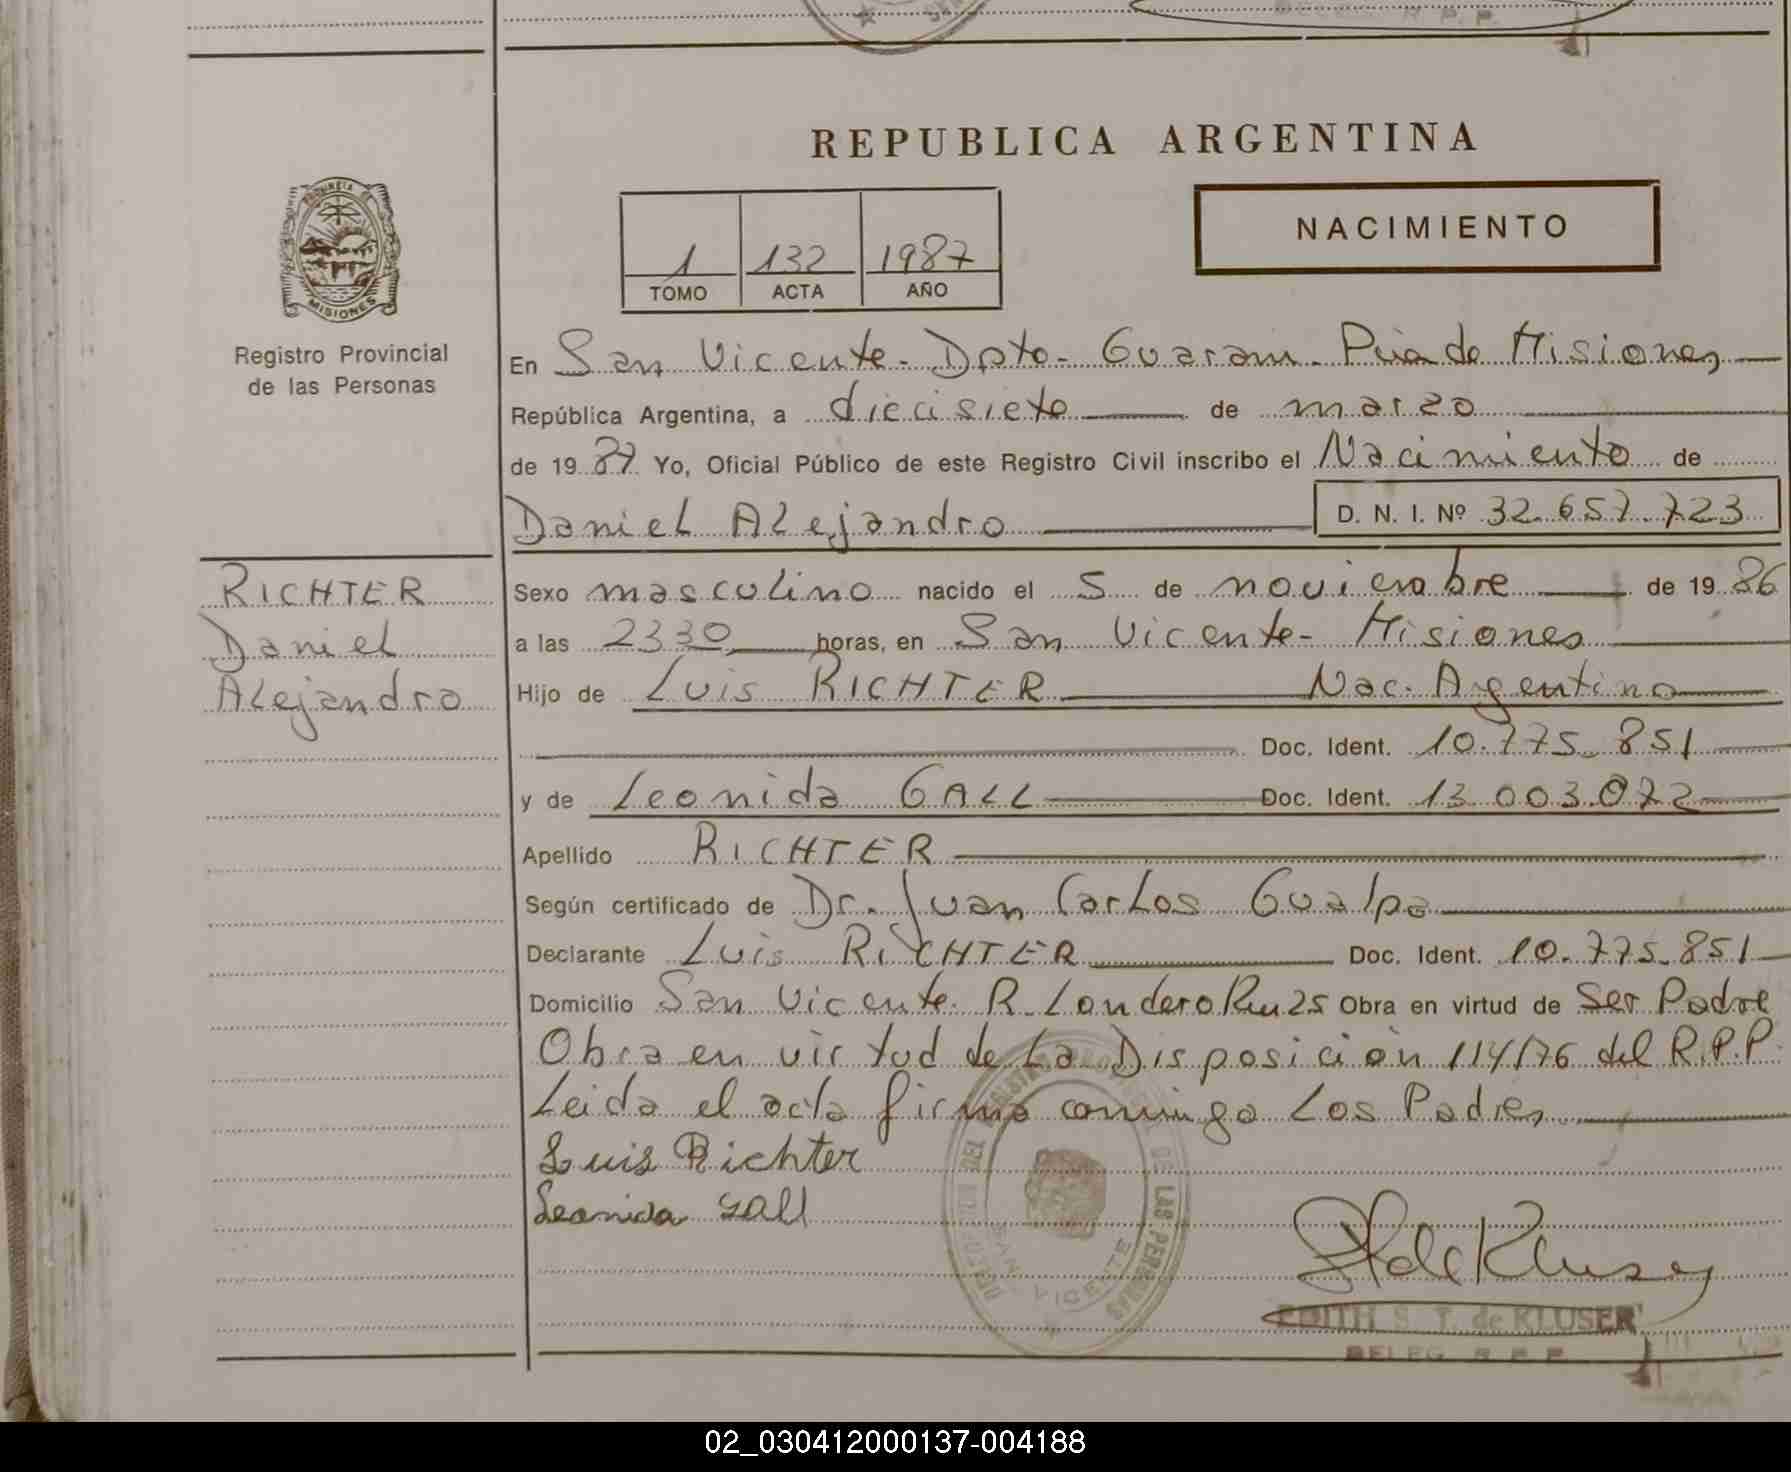 DELEG. R. P. P.
REPUBLICA ARGENTINA
NACIMIENTO
1 132 1987
TOMO ACTA AÑO
PROVINCIA DE
MISIONES
Registro Provincial
de las Personas
En San Vicente - Dpto - Guarani - Pcia de Misiones
República Argentina, a diecisiete de marzo
de 1987 Yo, Oficial Público de este Registro Civil inscribo el Nacimiento de
Daniel Alejandro D. N. I. Nº 32.657.723
RICHTER
Daniel
Alejandro
Sexo masculino nacido el 5 de noviembre de 1986
a las 2330 horas, en San Vicente - Misiones
Hijo de Luis RICHTER Nac. Argentino
Doc. Ident. 10.775.851
y de Leonida GALL Doc. Ident. 13.003.072
Apellido RICHTER
Según certificado de Dr. Juan Carlos Gualpa
Declarante Luis RICHTER Doc. Ident. 10.775.851
Domicilio San Vicente - R. Londero Km 25 Obra en virtud de Ser Padre
Obra en virtud de La Disposición 114/76 del R.P.P.
Leida el acta firma conmigo Los Padres
Luis Richter
Leonida Gall
DE LAS PERSONAS
SAN VICENTE
EDITH S. T. de KLUSER
DELEG. R. P. P.
02_030412000137-004188